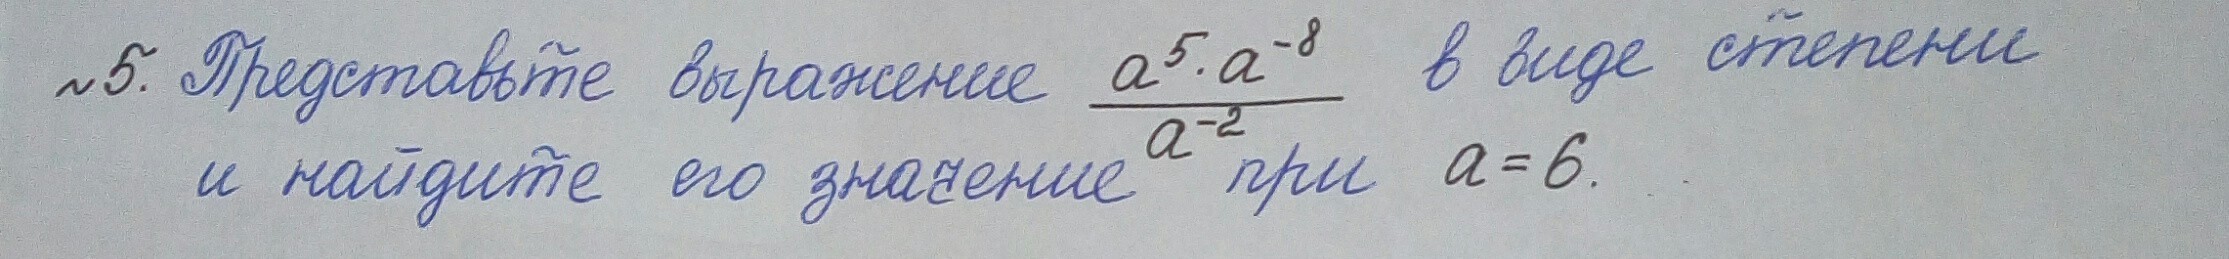 №5. Представьте выражение \frac{a^5 \cdot a^{-8}}{a^{-2}} в виде степени
и найдите его значение при a = 6.